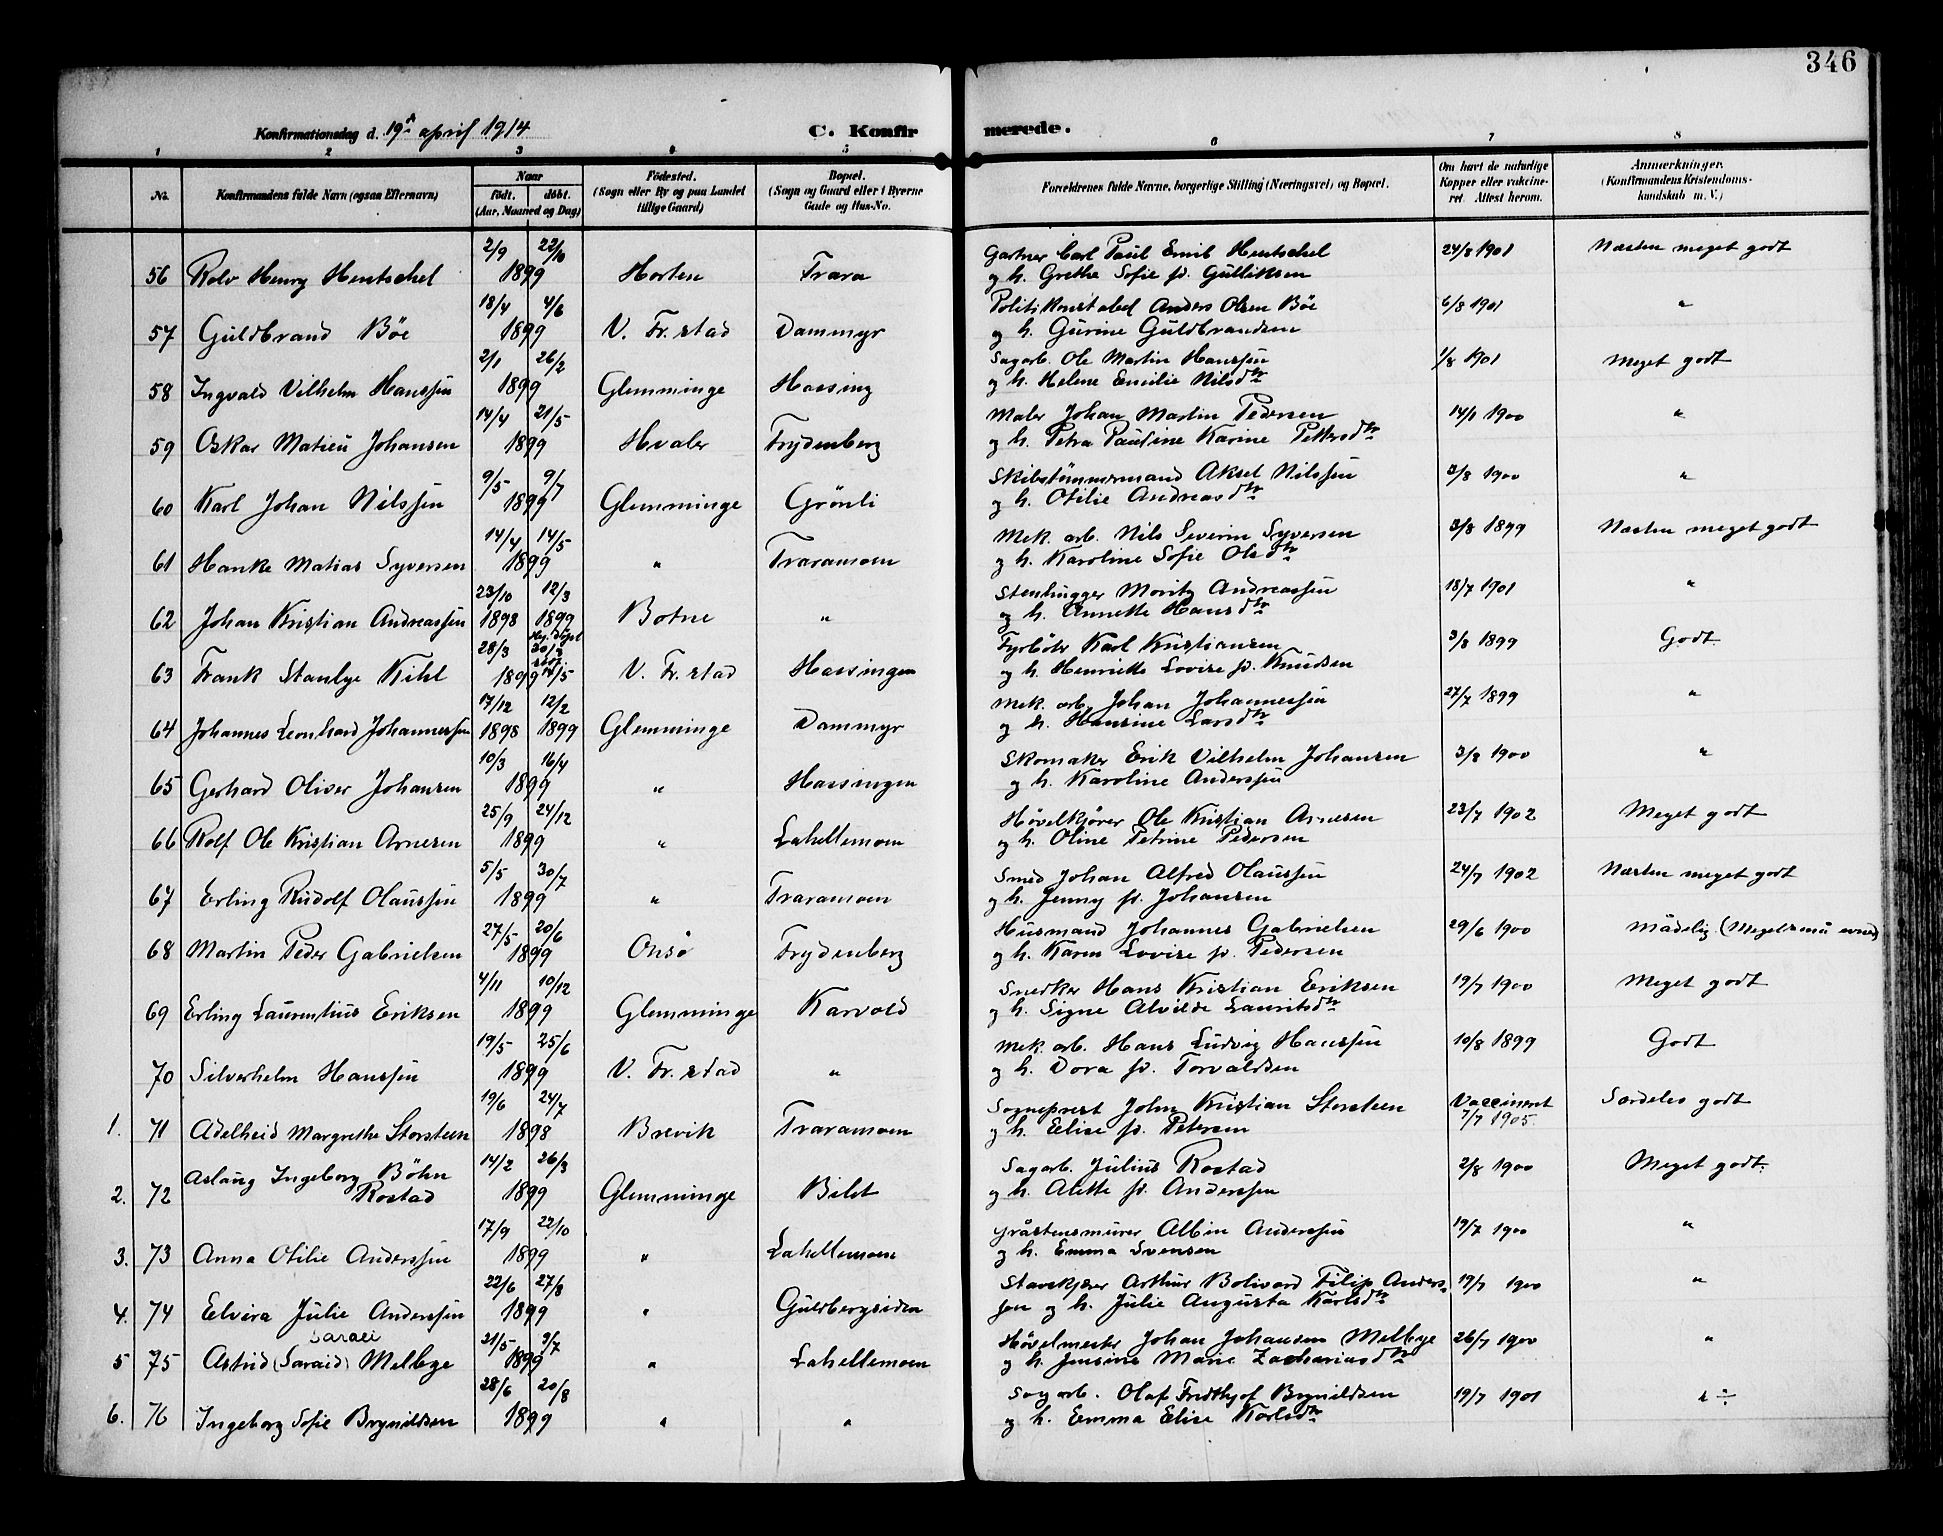 346
Konfirmationsdag d. 19de april 1914 C. Konfir merede.
1 2 3 4 5 6 7 8
No. Konfirmandens fulde Navn (ogsaa Efternavn) Naar født. døbt. (Aar, Maaned og Dag) Fødested. (Sogn eller By og paa Landet tillige Gaard) Bopæl. (Sogn og Gaard eller i Byerne Gade og Hus-No. Forældrenes fulde Navne, borgerlige Stilling (Næringsvei) og Bopæl. Om havt de naturlige Kopper eller vakcineret. Attest herom. Anmærkninger. (Konfirmandens Kristendomskundskab m. V.)
2/9 22/10 Gartner Carl Paul Emil Hentschel 24/8 1901 Næsten meget godt
56 Rolv Henry Hentschel 1899 Horten Trara og h. Grethe Sofie f. Gulliksen
18/4 4/6 Politikonstabel Anders Olsen Böe 6/8 1901 "
57 Guldbrand Böe 1899 V. Fr.stad Dammyr og h. Gurine Guldbrandsen
2/1 26/2 Sagarb. Ole Martin Hanssen 1/8 1901 Meget godt
58 Ingvald Vilhelm Hanssen 1899 Glemminge Hassing og h. Helene Emilie Nilsdtr
14/4 21/5 Maler Johan Martin Pedersen 14/9 1900 "
59 Oskar Matieu Johansen 1899 Hvaler Frydenberg og h. Petra Pauline Karine Pettersdtr
9/5 9/7 Skibstømmermand Aksel Nilssen 3/8 1900 "
60 Karl Johan Nilssen 1899 Glemminge Grönli og h. Otilie Andreasdtr
14/4 14/5 Mek. arb. Nils Severin Syversen 3/8 1899 Næsten meget godt
61 Hanke Matias Syversen 1899 " Traramoen og h. Karoline Sofie Olsdtr
23/10 12/3 Stenhugger Moritz Andreassen 18/7 1901 "
62 Johan Kristian Andreassen 1898 1899 Botne " og h. Annette Hansdtr
28/3 Hj. döpt 30/3 Fyrböter Karl Kristiansen 3/8 1899 Godt
63 Frank Stanlye Kihl 1899 14/5 V. Fr.stad Hassingen og h. Henriette Lovise f. Knudsen
17/12 12/2 Mek. arb. Johan Johannessen 27/7 1899 "
64 Johannes Leonhard Johannessen 1898 1899 Glemminge Dammyr og h. Hansine Larsdtr
10/3 16/4 Skomaker Erik Vilhelm Johansen 3/8 1900 "
65 Gerhard Oliver Johansen 1899 " Hassingen og h. Karoline Anderssen
25/9 24/12 Hövelkjörer Ole Kristian Arnesen 23/7 1902 Meget godt
66 Rolf Ole Kristian Arnesen 1899 " Lahellemoen og h. Oline Petrine Pedersen
5/5 30/7 Smed Johan Alfred Olaussen 24/7 1902 Næsten meget godt
67 Erling Rudolf Olaussen 1899 " Traramoen og h. Jenny f. Johansen
27/5 20/6 Husmand Johannes Gabrielsen 29/6 1900 Mådelig (Meget små evner)
68 Martin Peder Gabrielsen 1899 Onsö Frydenberg og h. Karen Lovise f. Pedersen
4/11 10/12 Snedker Hans Kristian Eriksen 19/7 1900 Meget godt
69 Erling Laurentius Eriksen 1899 Glemminge Karvold og h. Signe Alvilde Lauritsdtr
19/5 25/6 Mek. arb. Hans Ludvig Hanssen 10/8 1899 Godt
70 Silverhelm Hanssen 1899 V. Fr.stad " og h. Dora f. Torvaldsen
19/6 24/7 Sogneprest John Kristian Storsteen Vaccineret 7/7 1905 Særdeles godt
1. 71 Adelheid Margrethe Storsteen 1898 Brevik Traramoen og h. Elise f. Petersen
14/2 26/3 Sagarb. Julius Rostad 2/8 1900 Meget godt
2. 72 Aslaug Ingeborg Böhn Rostad 1899 Glemminge Bilet og h. Alette f. Anderssen
17/9 22/10 Gråstensmurer Albin Anderssen 19/7 1900 "
3. 73 Anna Otilie Anderssen 1899 " Lahellemoen og h. Emma Svensen
22/6 27/8 Stavskjærer Arthur Bolivard Filip Anders- 19/7 1900 "
4. 74 Elvira Julie Anderssen 1899 " Guldbergsiden sen og h. Julie Augusta Karlsdtr
Saraei 21/5 9/7 Hövelmester Johan Johansen Melbye 26/7 1900 "
5 75 Astrid (Saraid) Melbye 1899 " Lahellemoen og h. Jensine Marie Zachariasdtr
28/6 20/8 Sagarb. Olaf Fridthjof Brynildsen 19/7 1901 " ÷
6. 76 Ingeborg Sofie Brynildsen 1899 " " og h. Emma Elise Karlsdtr